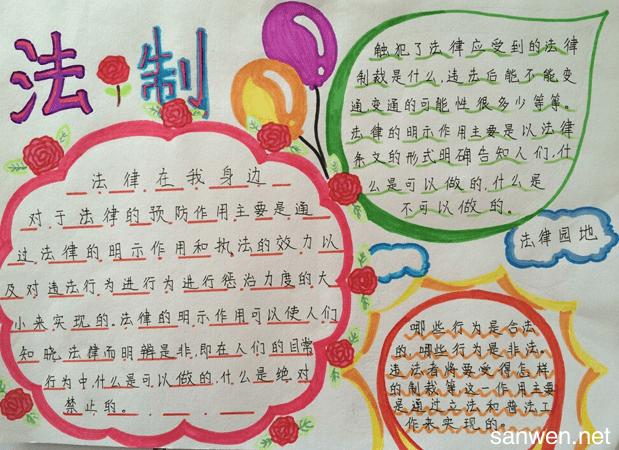 法制
法律在我身边
对于法律的预防作用主要是通
过法律的明示作用和执法的效力以
及对违法行为进行为进行惩治力度的大
小来实现的.法律的明示作用可以使人们
知晓法律而明辨是非,即在人们的日常
行为中,什么是可以做的.什么是绝对
禁止的。
触犯了法律应受到的法律
制裁是什么,违法后能不能变
通变通的可能性很多少等等。
法律的明示作用主要是以法律
条文的形式明确告知人们,什
么是可以做的,什么是
不可以做的。
法律园地
哪些行为是合法
的,哪些行为是非法。
违法者将要受得怎样
的制裁等这一作用主要
是通过立法和普法工
作来实现的。
sanwen.net